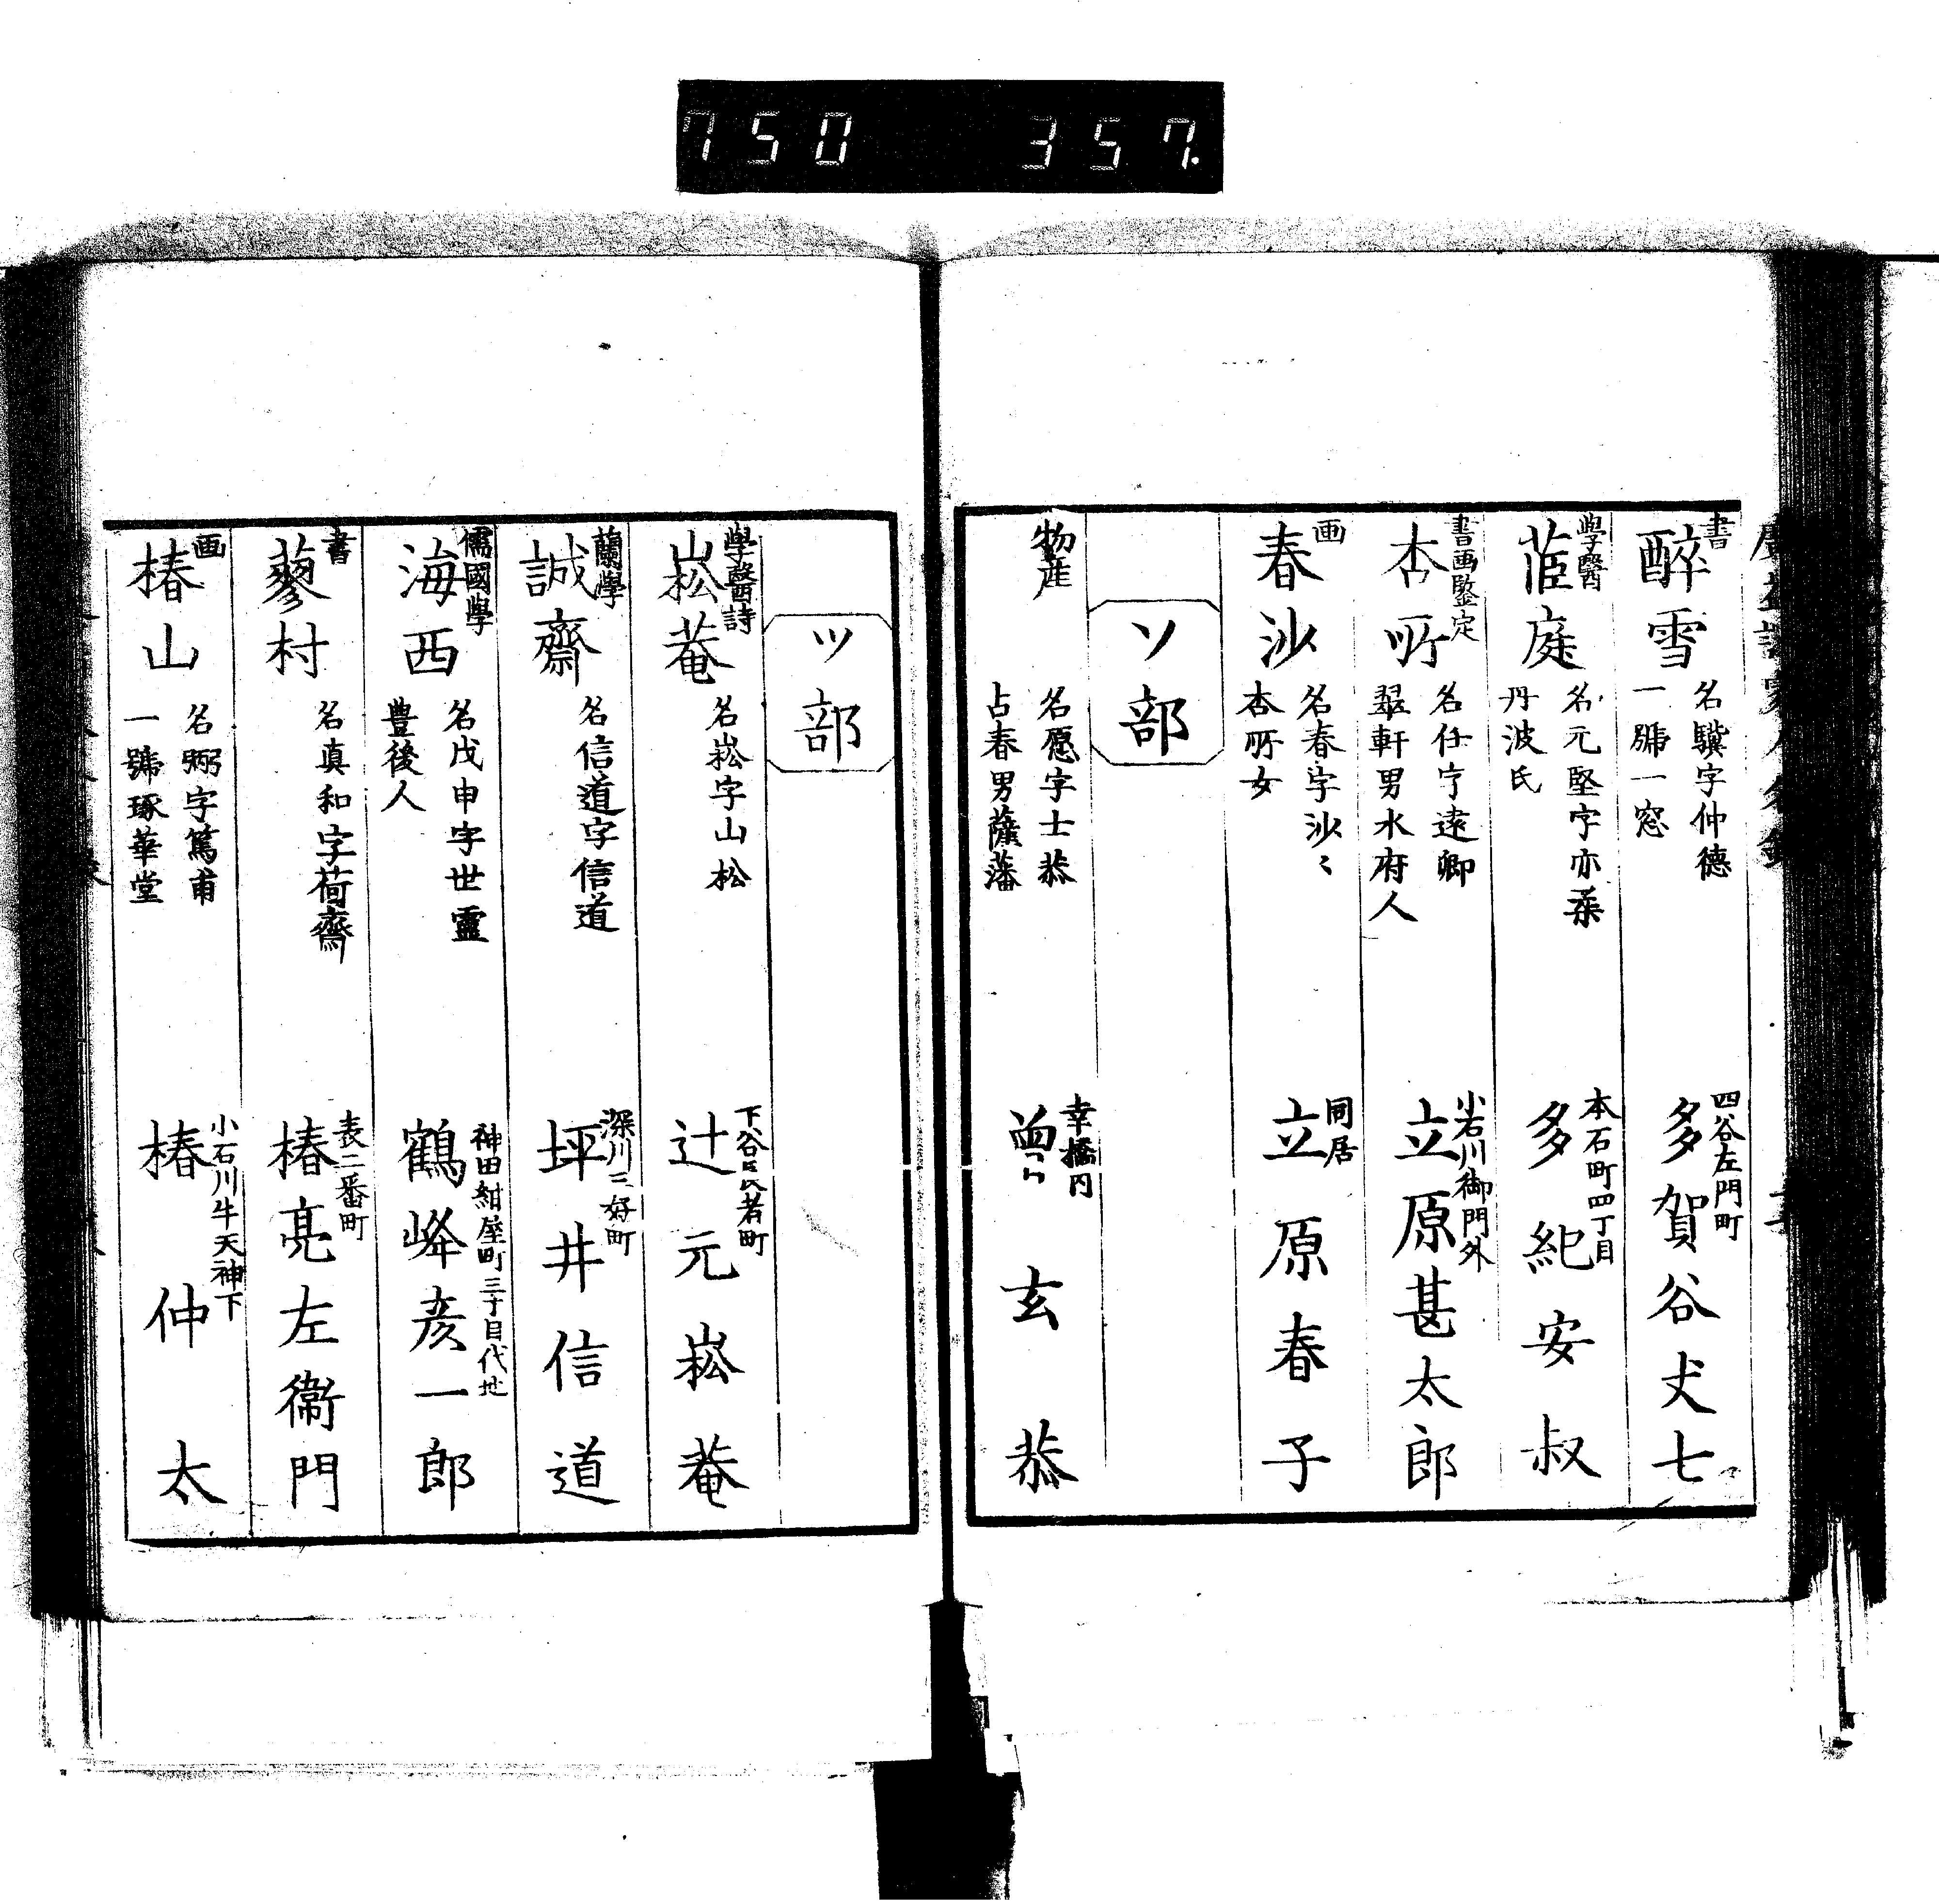 750 357.
書
醉雪
名驥字仲德
一號一窓
四谷左門町
多賀谷丈七
學醫
茝庭
名元堅字亦柔
丹波氏
本石町四丁目
多紀安叔
書画鑒定
杏所
名任字遠卿
翠軒男水府人
小石川御門外
立原甚太郎
画
春沙
名春字沙〻
杏所女
同居
立原春子
ソ部
物産
名愿字士恭
占春男薩藩
幸橋内
曽占玄恭
ツ部
學醫詩
崧菴
名崧字山松
下谷長者町
辻元崧菴
蘭學
誠齋
名信道字信道
深川三好町
坪井信道
儒國學
海西
名戊申字世靈
豊後人
神田紺屋町三丁目代地
鶴峰彦一郎
書
蓼村
名真和字荷齋
表二番町
椿亮左衞門
画
椿山
名弼字篤甫
一號琢華堂
小石川牛天神下
椿仲太